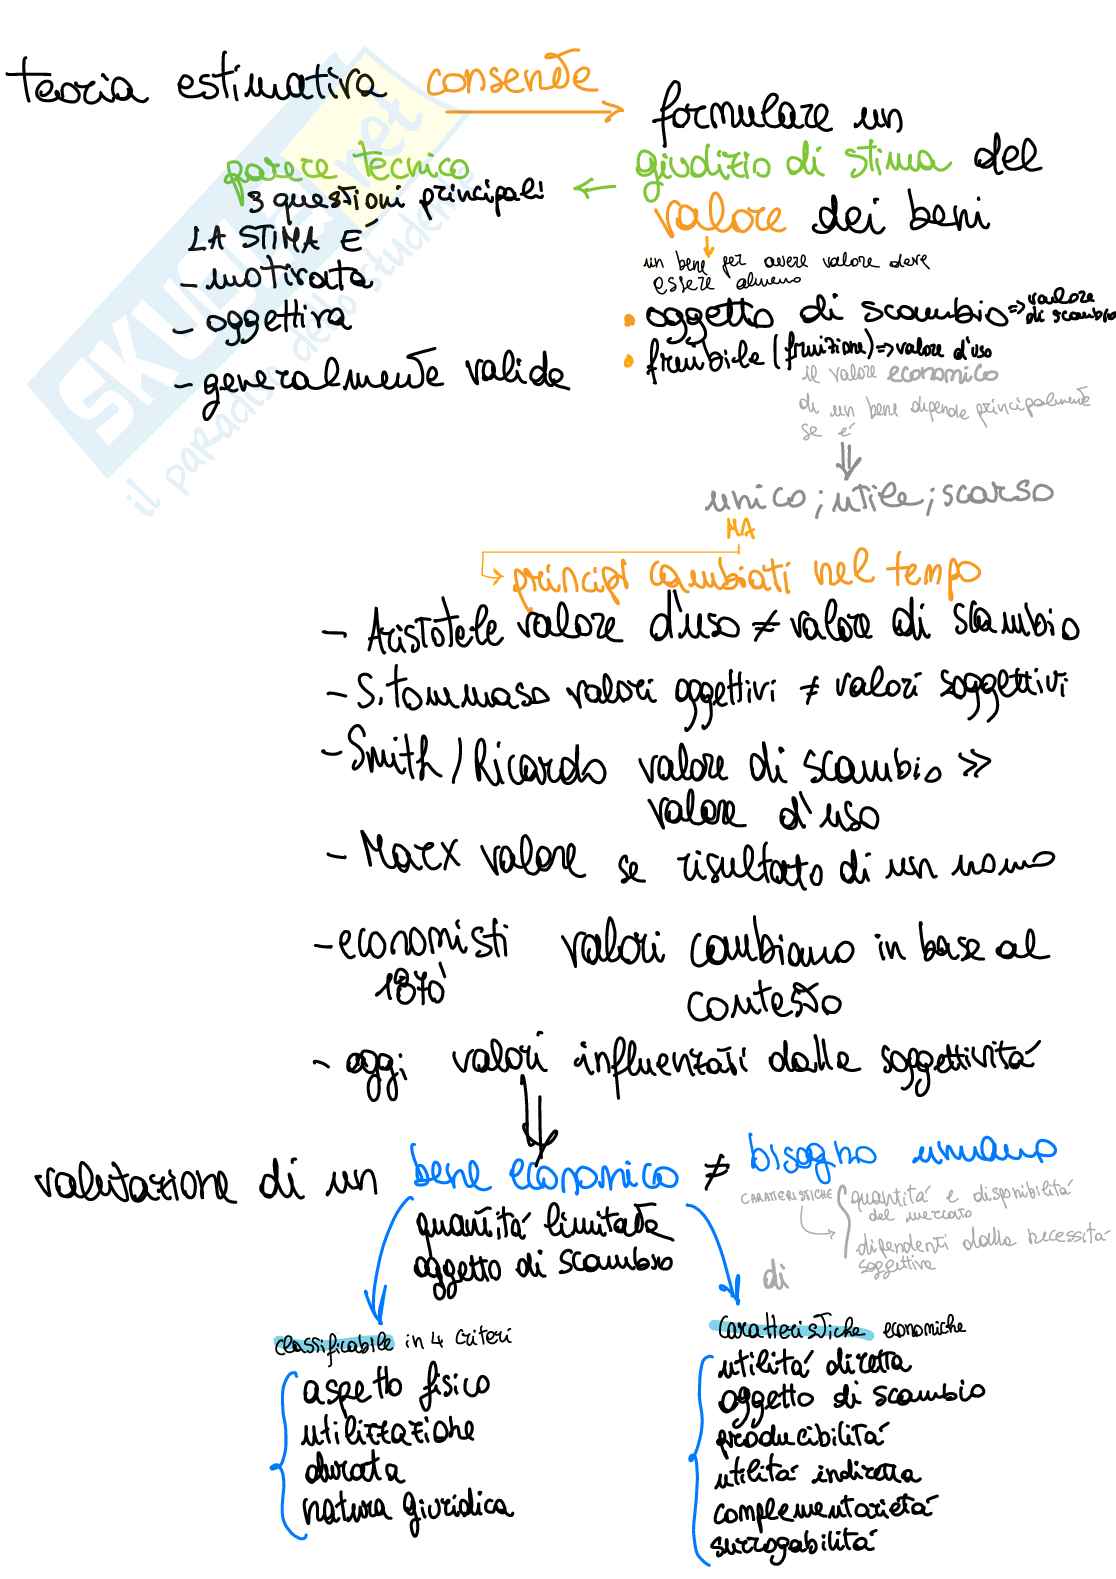 teoria estimativa consente
formulare un
giudizio di stima del
valore dei beni
parere tecnico
3 questioni principali
LA STIMA É
- motivata
- oggettiva
- generalmente valida
un bene per avere valore deve
essere almeno
• oggetto di scambio => valore
di scambio
• fruibile (fruizione) => valore d'uso
il valore economico
di un bene dipende principalmente
se é
unico; utile; scarso
MA
principi cambiati nel tempo
- Aristotele valore d'uso ≠ valore di scambio
- S. Tommaso valori oggettivi ≠ valori soggettivi
- Smith / Ricardo valore di scambio >>
valore d'uso
- Marx valore se risultato di un uomo
- economisti valori cambiano in base al
1870 contesto
- oggi valori influenzati dalla soggettivitá
valutazione di un bene economico ≠ bisogno umano
CARATTERISTICHE quantitá e disponibilitá
del mercato
dipendenti dalla necessitá
soggettiva
quantitá limitata
oggetto di scambio
di
classificabile in 4 criteri
aspetto fisico
utilizzazione
durata
natura giuridica
caratteristiche economiche
utilitá diretta
oggetto di scambio
producibilitá
utilitá indiretta
complementarietá
surrogabilitá
SKUOLA.net
il paradiso dello studente